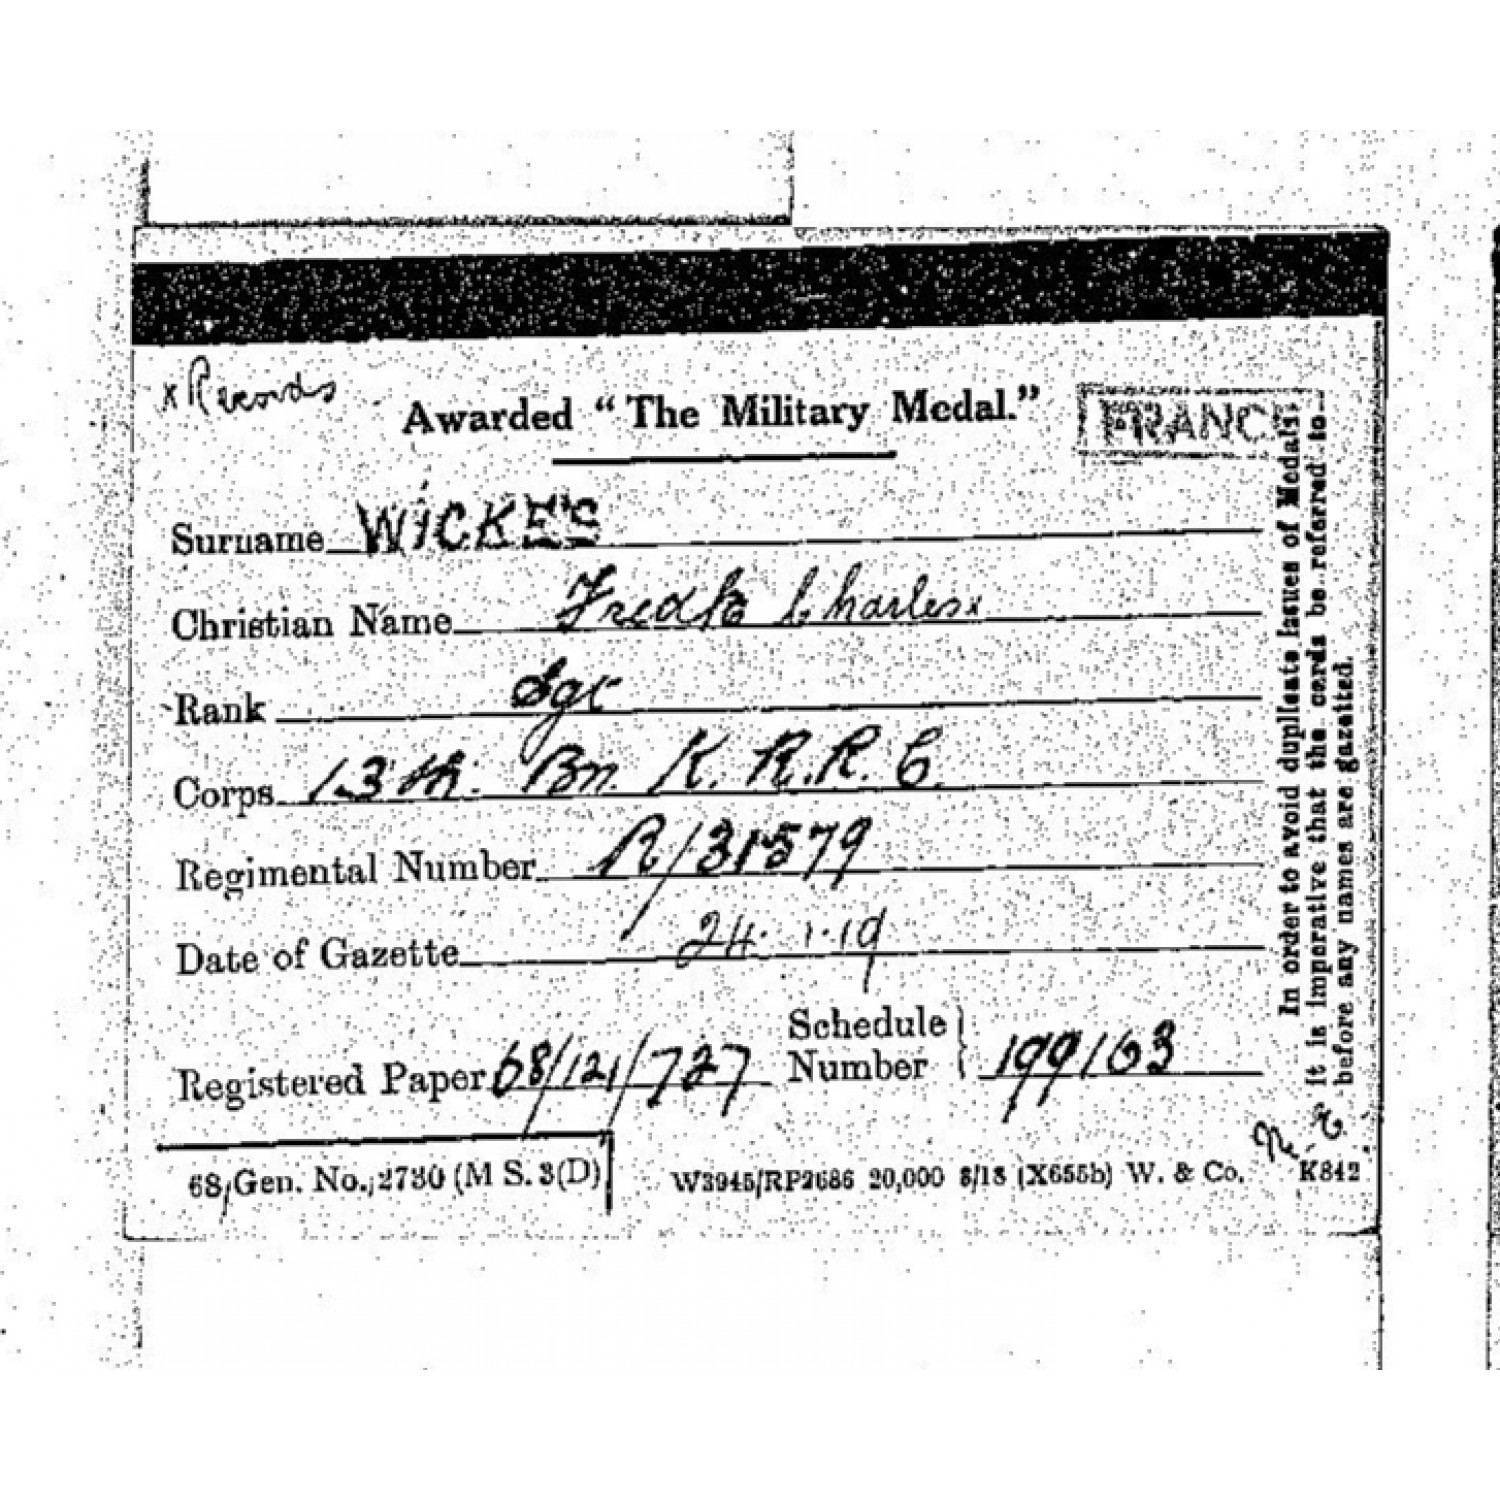 x Records
Awarded "The Military Medal."
FRANCE
Surname WICKES
Christian Name Fredk Charles x
Rank Sgt
Corps 13th Bn. K. R. R. C.
Regimental Number R/31579
Date of Gazette 24.1.19
Registered Paper 68/121/727
Schedule Number 199163
68/Gen. No./2730 (M S. 3(D)
W3945/RP2686 20,000 8/18 (X655b) W. & Co. K842
In order to avoid duplicate issues of Medals
it is imperative that the cards be referred to
before any names are gazetted.